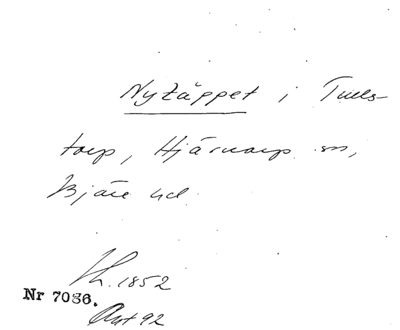 Nytäppet i Tuels-
torp, Hjärnarp sn,
Bjäre hd.
h. 1852
Nr 7036.
Ant 92